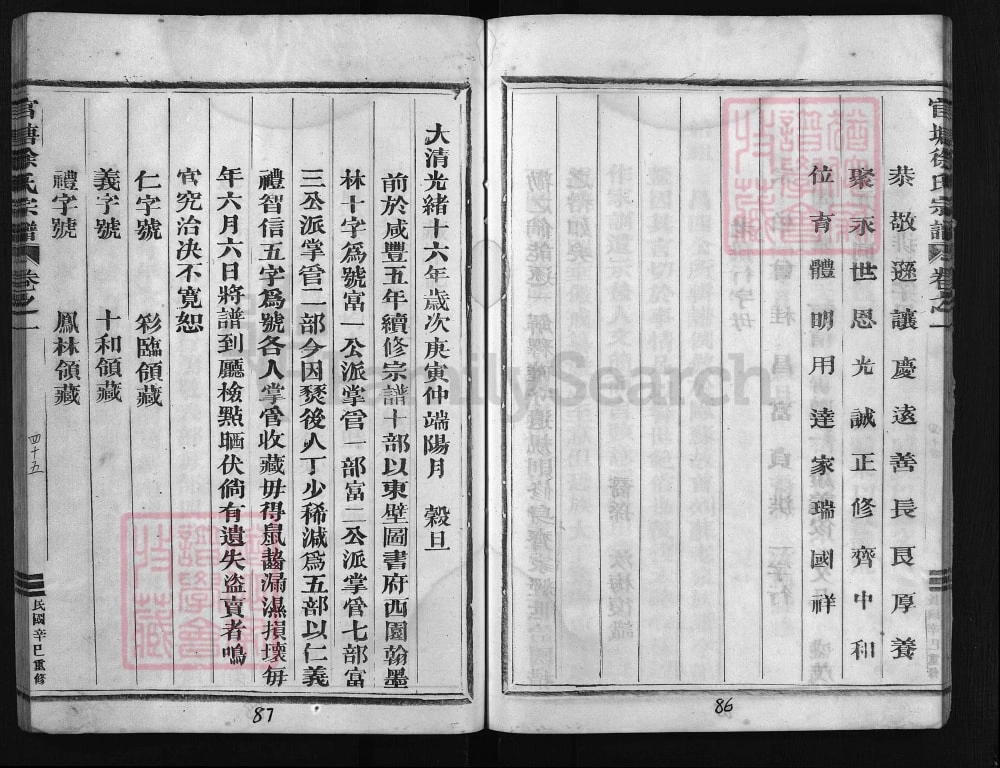 官塘徐氏宗譜
卷之一
恭敬遜讓慶遠善長良厚養
聚永世恩光誠正修齊中和
位育體明用達家瑞國祥
86
大清光緒十六年歲次庚寅仲端陽月 穀旦
前於咸豐五年續修宗譜十部以東壁圖書府西園翰墨
林十字爲號富一公派掌管一部富二公派掌管七部富
三公派掌管二部今因燹後人丁少稀減爲五部以仁義
禮智信五字爲號各人掌管收藏毋得鼠齧漏濕損壞每
年六月六日將譜到廳檢點晒伏倘有遺失盜賣者鳴
官究治決不寬恕
仁字號 彩臨領藏
義字號 十和領藏
禮字號 鳳林領藏
官塘徐氏宗譜
卷之一
四十五
民國辛巳重修
87
FamilySearch